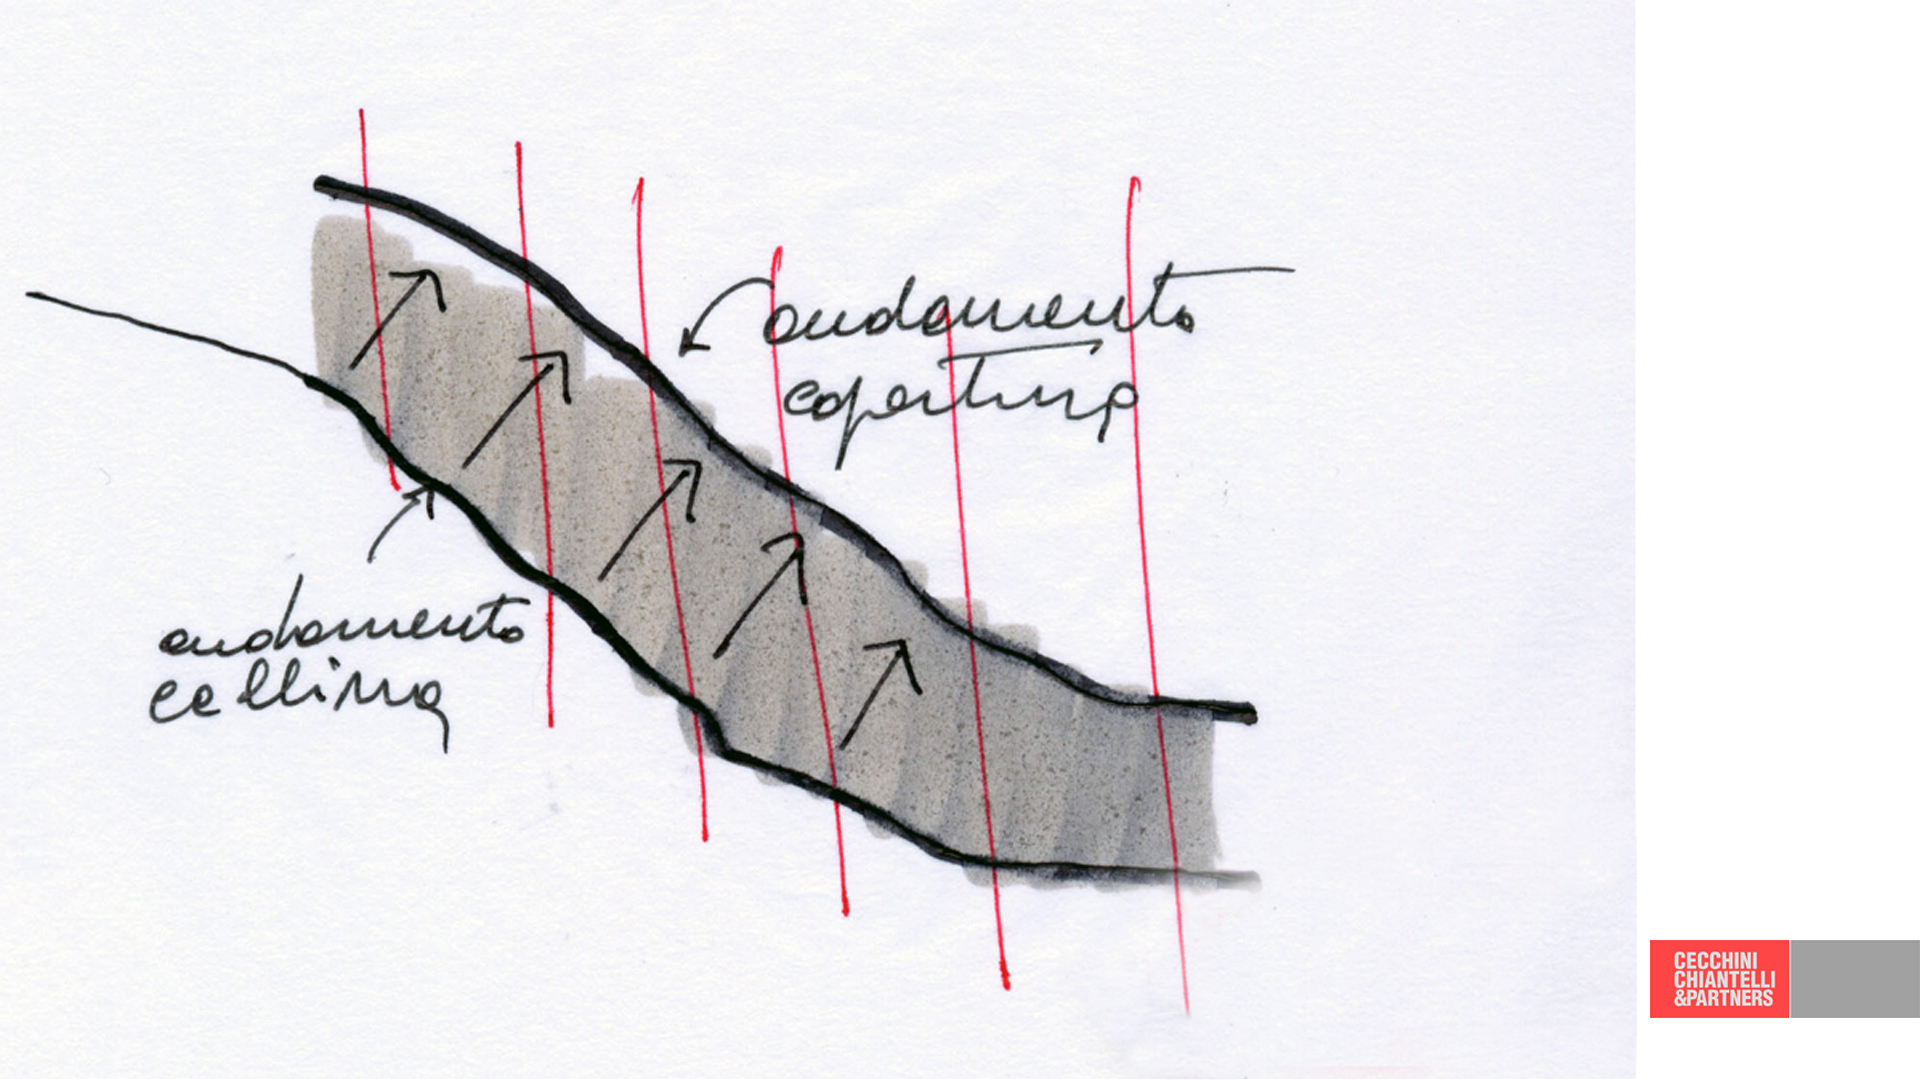 andamento
copertura
andamento
collina
CECCHINI
CHIANTELLI
&PARTNERS